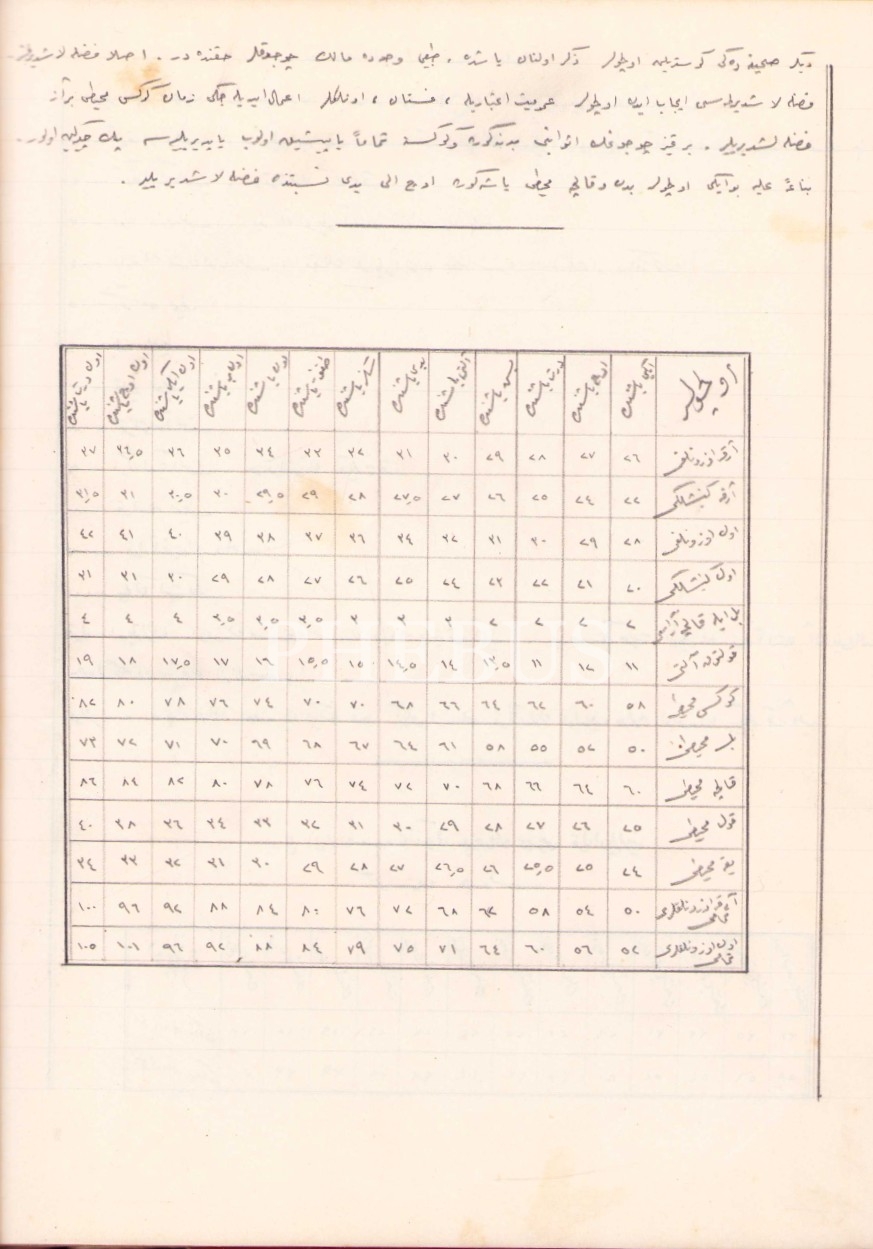 ديكر صحيفه ده كى كوستريلن اولچولر ذكر اولنان ياشده ، طبيعى وجوده مالك چوجوقلر حقنده در . اصلا فضله لاشديرلمز
فضله لاشديرلمسى ايجاب ايدن اولچولر عموميت اعتباريله ، فستان ، اونلكلر اعمال ايديله جكى زمان كوكس محيطى براز
فضله لشديريلير . بر قيز چوجوغنك اثوابنى بدنه كوره وكوكسه تماماً ياپيشيق اولوب ياپديريليرسه پك چركين اولور .
بناءً عليه بو ايكى اولچولر بدن وقالچه محيطى ياشه كوره اوچ الى يدى نسبتنده فضله لاشديريلير .
اولچولر ايكى ياشنده اوچ ياشنده درت ياشنده بش ياشنده آلتى ياشنده يدى ياشنده سكز ياشنده طقوز ياشنده اون ياشنده اون بر ياشنده اون ايكى ياشنده اون اوچ ياشنده اون درت ياشنده
آرقه اوزونلغى ٢٦ ٢٧ ٢٨ ٢٩ ٣٠ ٣١ ٣٢ ٣٣ ٣٤ ٣٥ ٣٦ ٣٦,٥ ٣٧
آرقه كنيشلكى ٢٢ ٢٤ ٢٥ ٢٦ ٢٧ ٢٧,٥ ٢٨ ٢٩ ٢٩,٥ ٣٠ ٣٠,٥ ٣١ ٣١,٥
اوك اوزونلغى ٢٨ ٢٩ ٣٠ ٣١ ٣٢ ٣٤ ٣٦ ٣٧ ٣٨ ٣٩ ٤٠ ٤١ ٤٢
اوك كنيشلكى ٢٠ ٢١ ٢٢ ٢٣ ٢٤ ٢٥ ٢٦ ٢٧ ٢٨ ٢٩ ٣٠ ٣١ ٣١
بل ايله قالچه آراسى ٢ ٢ ٢ ٢ ٣ ٣ ٣ ٣,٥ ٣,٥ ٣,٥ ٤ ٤ ٤
قولتوق آلتى ١١ ١٢ ١١ ١٣,٥ ١٤ ١٤,٥ ١٥ ١٥,٥ ١٦ ١٧ ١٧,٥ ١٨ ١٩
كوكس محيطى ٥٨ ٦٠ ٦٢ ٦٤ ٦٦ ٦٨ ٧٠ ٧٠ ٧٤ ٧٦ ٧٨ ٨٠ ٨٢
بل محيطى ٥٠ ٥٢ ٥٥ ٥٨ ٦١ ٦٤ ٦٧ ٦٨ ٦٩ ٧٠ ٧١ ٧٢ ٧٣
قالچه محيطى ٦٠ ٦٤ ٦٦ ٦٨ ٧٠ ٧٢ ٧٤ ٧٦ ٧٨ ٨٠ ٨٢ ٨٤ ٨٦
قول محيطى ٢٥ ٢٦ ٢٧ ٢٨ ٢٩ ٣٠ ٣١ ٣٢ ٣٣ ٣٤ ٣٦ ٣٨ ٤٠
محيطى ٢٤ ٢٥ ٢٥,٥ ٢٦ ٢٦,٥ ٢٧ ٢٨ ٢٩ ٣٠ ٣١ ٣٢ ٣٣ ٣٤
آرقه اوزونلقلرى تمامى ٥٠ ٥٤ ٥٨ ٦٣ ٦٨ ٧٢ ٧٦ ٨٠ ٨٤ ٨٨ ٩٢ ٩٦ ١٠٠
اوك اوزونلقلرى تمامى ٥٢ ٥٦ ٦٠ ٦٤ ٧١ ٧٥ ٧٩ ٨٤ ٨٨ ٩٢ ٩٦ ١٠١ ١٠٥
PHEBUS